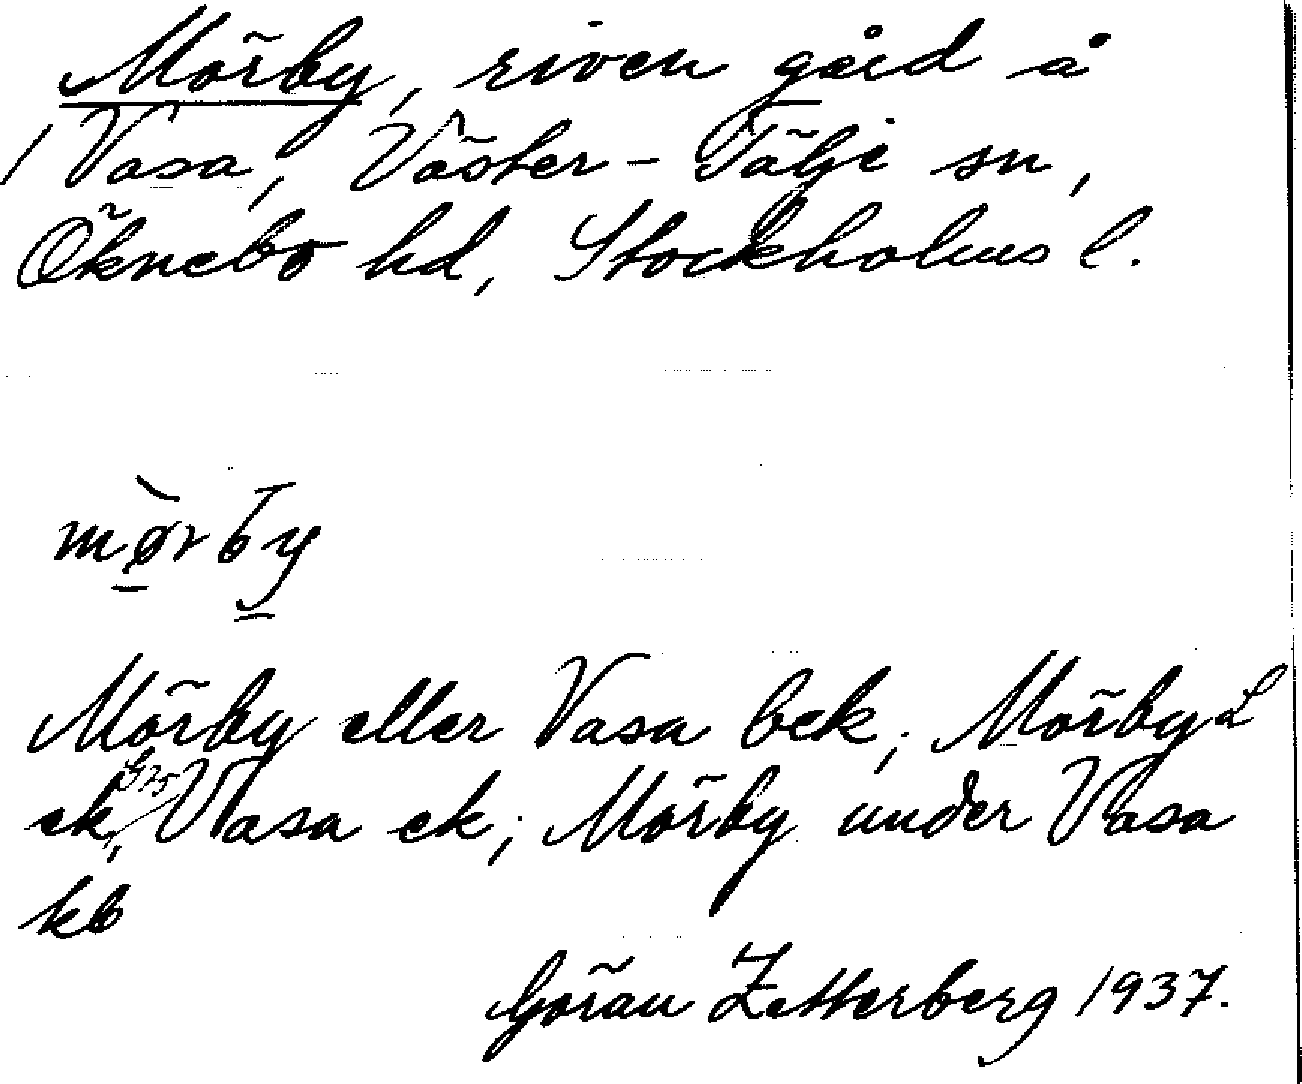 Mörby, riven gård å
Vasa, Väster-Tälje sn,
Öknebo hd, Stockholms l.
mø̀rby
Mörby eller Vasa bek; Mörby L
ek, Vasa ek; Mörby under Vasa
kb
Göran Zetterberg 1937.